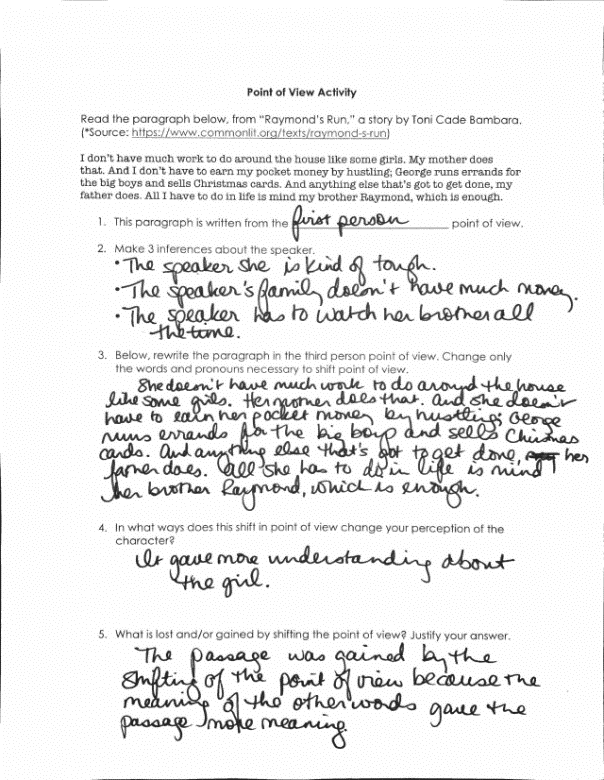 Point of View Activity
Read the paragraph below, from "Raymond's Run," a story by Toni Cade Bambara.
(*Source: https://www.commonlit.org/texts/raymond-s-run)
I don't have much work to do around the house like some girls. My mother does
that. And I don't have to earn my pocket money by hustling; George runs errands for
the big boys and sells Christmas cards. And anything else that's got to get done, my
father does. All I have to do in life is mind my brother Raymond, which is enough.
1. This paragraph is written from the first person point of view.
2. Make 3 inferences about the speaker.
• The speaker she is kind of tough.
• The speaker's family doesn't have much money.
• The speaker has to watch her brother all
the time.
3. Below, rewrite the paragraph in the third person point of view. Change only
the words and pronouns necessary to shift point of view.
She doesn't have much work to do around the house
like some girls. Her mother does that. And she doesn't
have to earn her pocket money by hustling; George
runs errands for the big boys and sells Chismas
cards. And anything else that's got to get done, her
father does. All she has to do in life is mind
her brother Raymond, which is enough.
4. In what ways does this shift in point of view change your perception of the
character?
It gave more understanding about
the girl.
5. What is lost and/or gained by shifting the point of view? Justify your answer.
The passage was gained by the
shifting of the point of view because the
meaning of the other words gave the
passage more meaning.